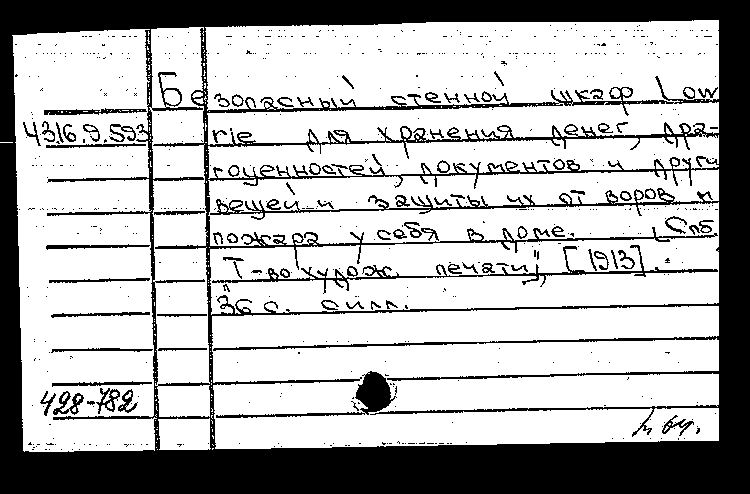 Безопасный стенной шкаф Low
4316.9.593 rie для хранения денег, дра-
гоценностей, документов и други
вещей и защиты их от воров и
пожара у себя в доме. [Спб.
Т-во худож. печати", [1913].
36 с. с илл.
428-782